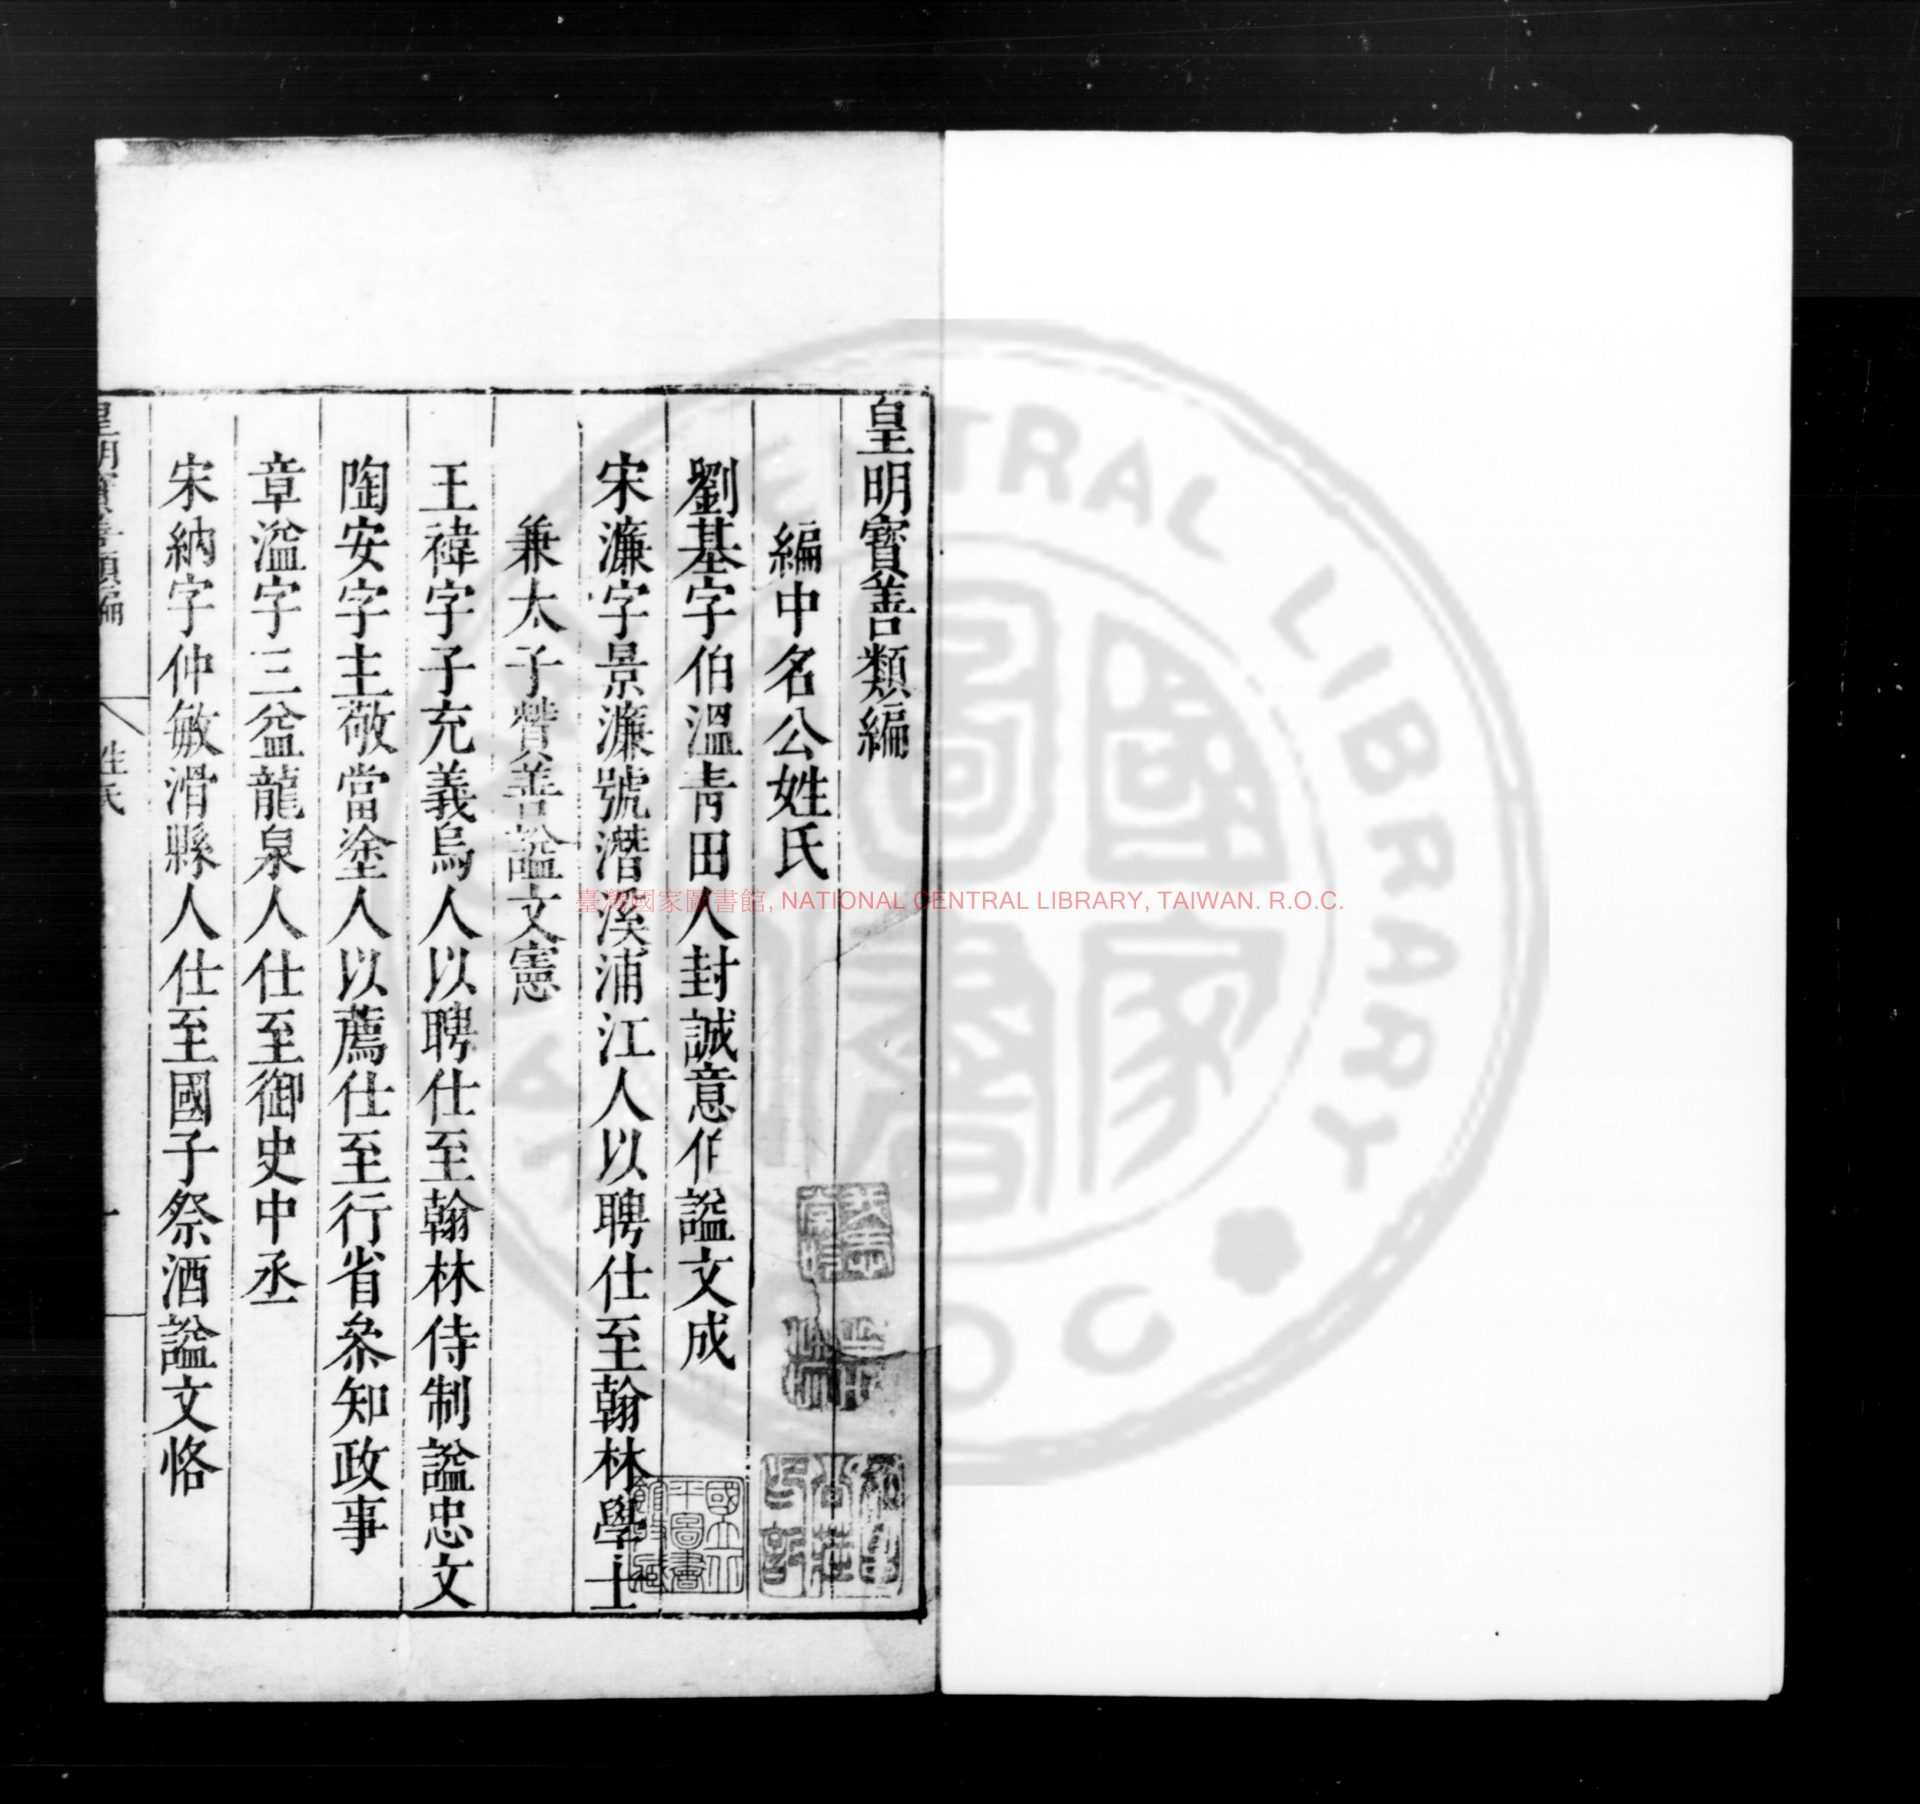 皇明寳善類編
編中名公姓氏
劉基字伯溫青田人封誠意伯謚文成
宋濂字景濂號潛溪浦江人以聘仕至翰林學士
兼太子贊善謚文憲
王褘字子充義烏人以聘仕至翰林侍制謚忠文
陶安字主敬當塗人以薦仕至行省叅知政事
章溢字三益龍泉人仕至御史中丞
宋納字仲敏滑縣人仕至國子祭酒謚文恪
皇明寳善類編
姓氏
一
國立北平圖書館收藏
臺灣國家圖書館, NATIONAL CENTRAL LIBRARY, TAIWAN. R.O.C.